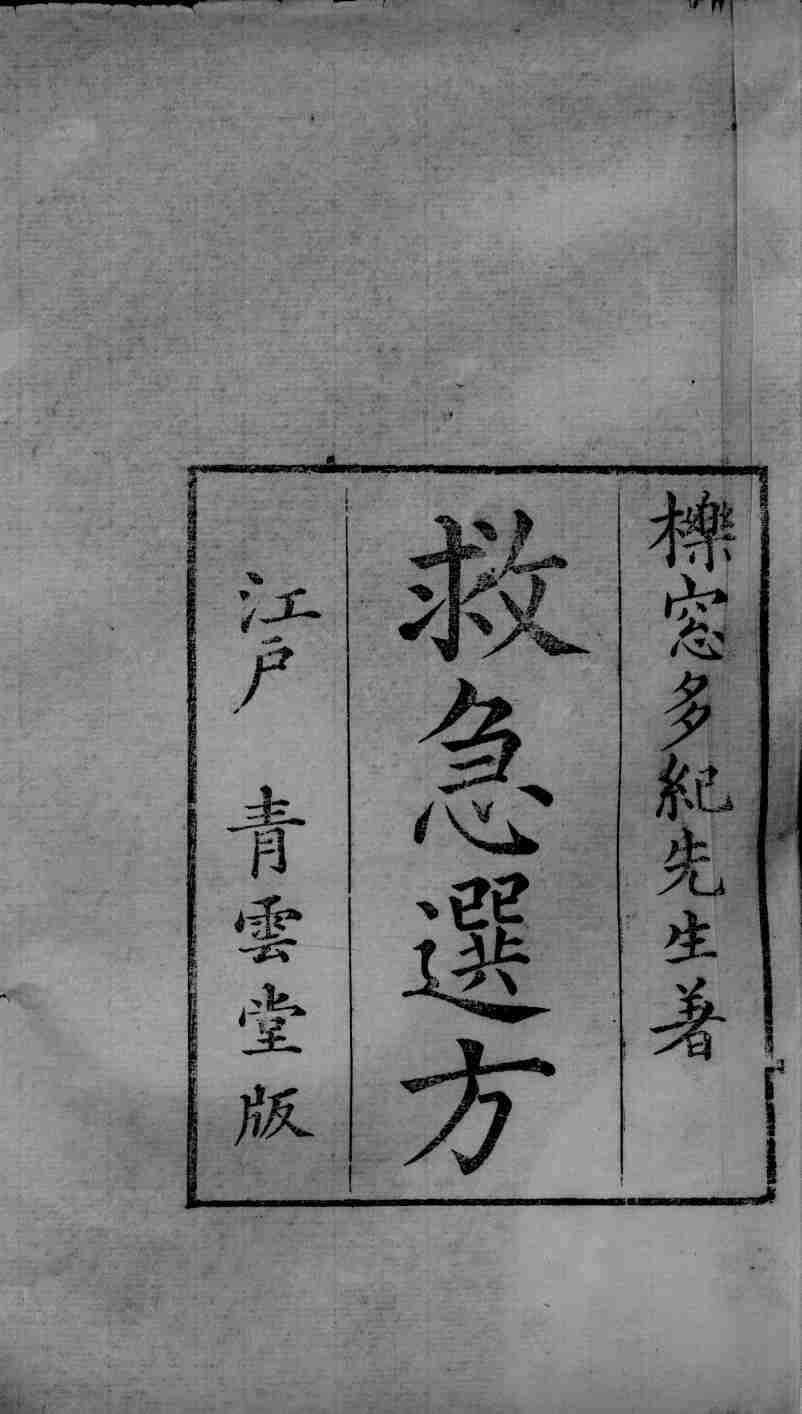 櫟窓多紀先生著
救急選方
江戸 青雲堂版